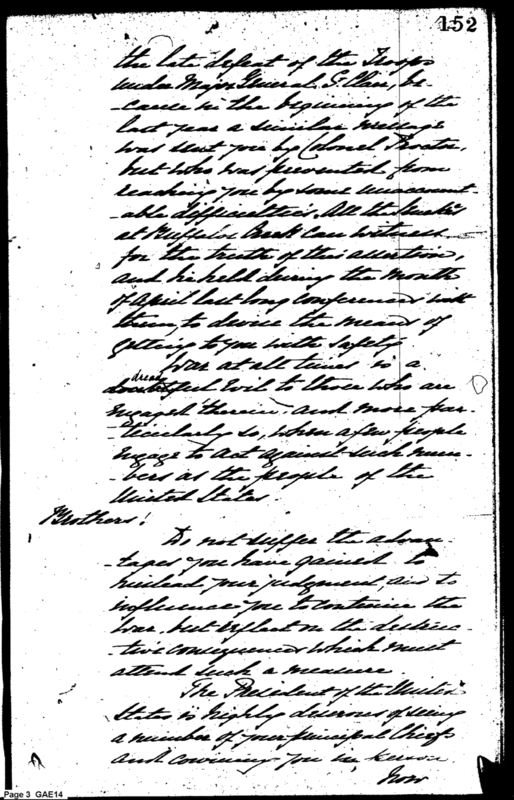 152
the late defeat of the Troops
under Major General St. Clair, be-
-cause in the beginning of the
last year a similar message
was sent you by Colonel Proctor,
but who was prevented from
reaching you by some unaccount
-able difficulties. All the
at Buffaloe Creek can witness
for the truth of this assertion,
and he held during the month
of April last long conferences with
them, to devise the means of
getting to you with safety
War at all times is a
dread
ful Evil to those who are
engaged therein. and more par-
-ticularly so, when a few people
engage to act against such num-
-bers as the people of the
United States.
Brothers!
Do not suffer the advan-
-tages you have gained to
mislead your judgment, and to
influence you to continue the
War. but reflect on the destruc-
-tive consequences which must
attend such a measure
The President of the United
States is highly desirous of seeing
a number of your principal Chiefs
and you in person
Now
Page 3 GAE14